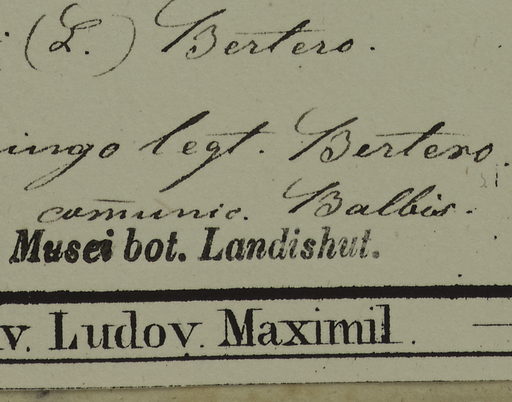 (L.) Bertero.
legt. Bertero.
comunic. Balbis.
Musei bot. Landishut.
v. Ludov. Maximil.